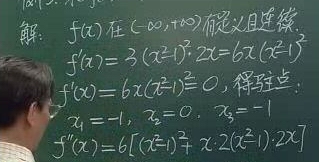 解: f(x) 在 (-∞,+∞) 有定义且连续
f'(x) = 3(x²-1)²·2x = 6x(x²-1)²
f'(x) = 6x(x²-1)² = 0, 得驻点:
x₁ = -1, x₂ = 0. x₃ = -1
f''(x) = 6[(x²-1)² + x·2(x²-1)·2x]